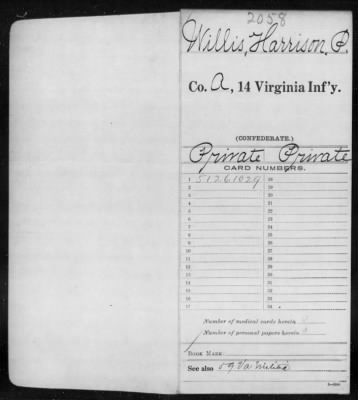 2058
Willis, Harrison, P.
Co. A, 14 Virginia Inf'y.
(CONFEDERATE.)
Private Private
CARD NUMBERS.
1 51261029 18
2 19
3 20
4 21
5 22
6 23
7 24
8 25
9 26
10 27
11 28
12 29
13 30
14 31
15 32
16 33
17 34
Number of medical cards herein
Number of personal papers herein 0
BOOK MARK:
See also 59 Va Militia